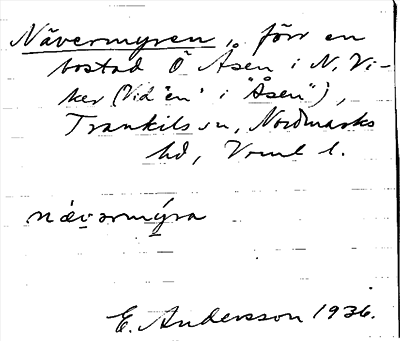 Nävermyren, förr en
bostad Ö Åsen i N. Vi-
ker (Vid "en" i "Åsen"),
Trankils sn, Nordmarks
hd, Vrml l.
nävərmýra
E. Andersson 1936.